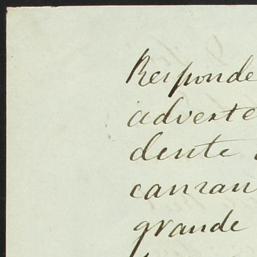 Responde
adverte
dente
canzan
grande